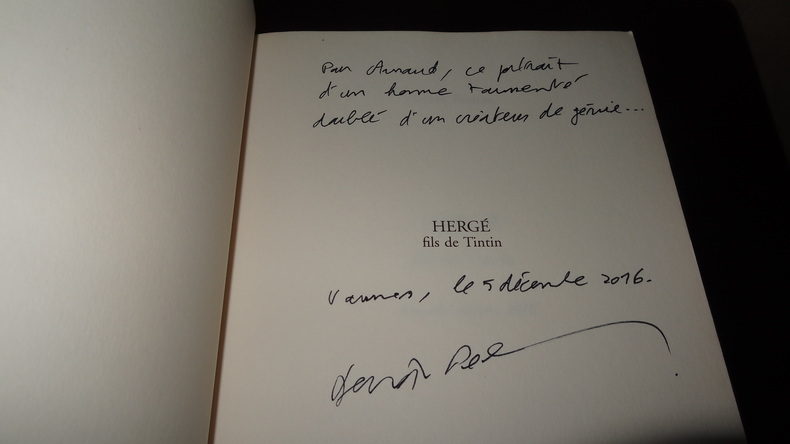 Pour Arnaud, ce portrait
d'un homme tourmenté
doublé d'un créateur de génie...
HERGÉ
fils de Tintin
Vannes, le 5 décembre 2016.
Benoît Pee